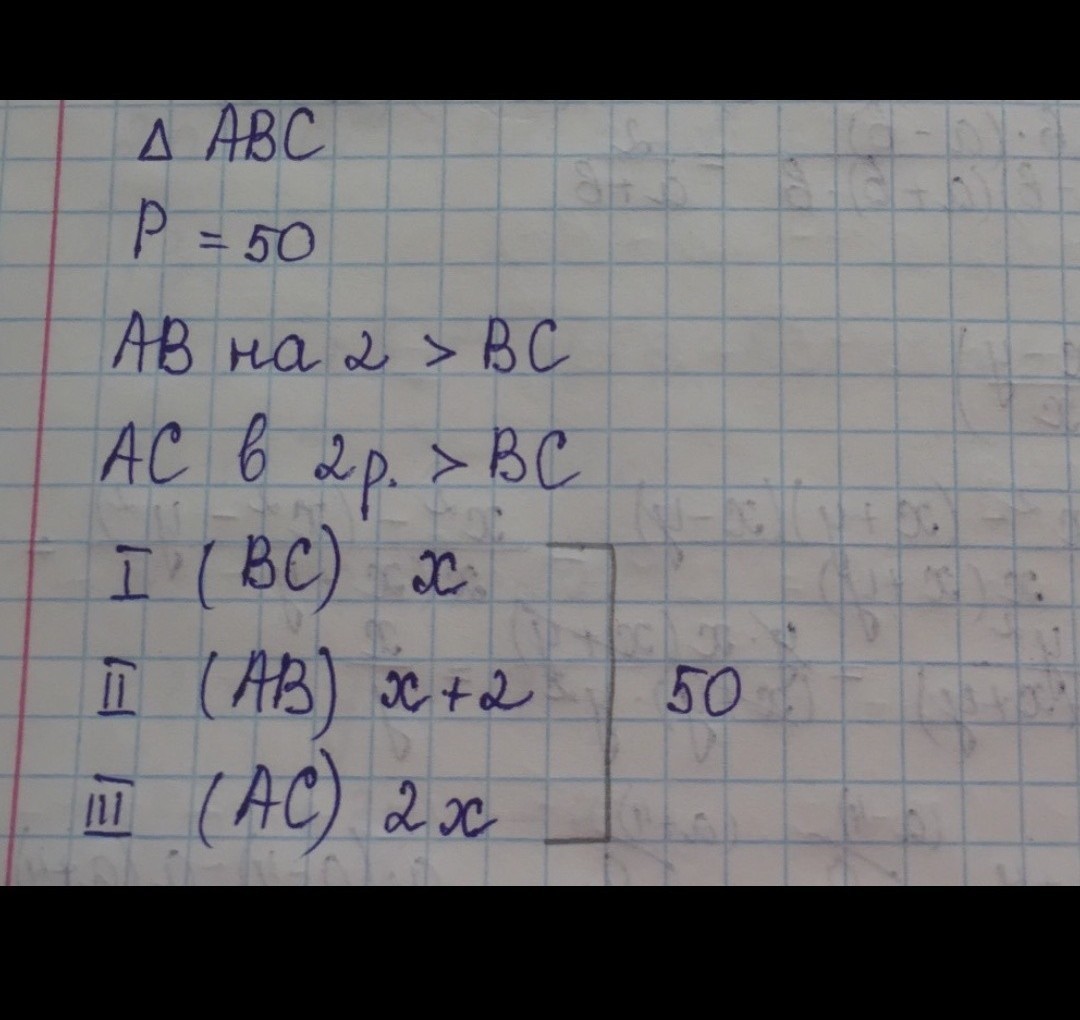 Δ ABC
P = 50
AB на 2 > BC
AC в 2р. > BC
I (BC) x
II (AB) x+2 50
III (AC) 2x